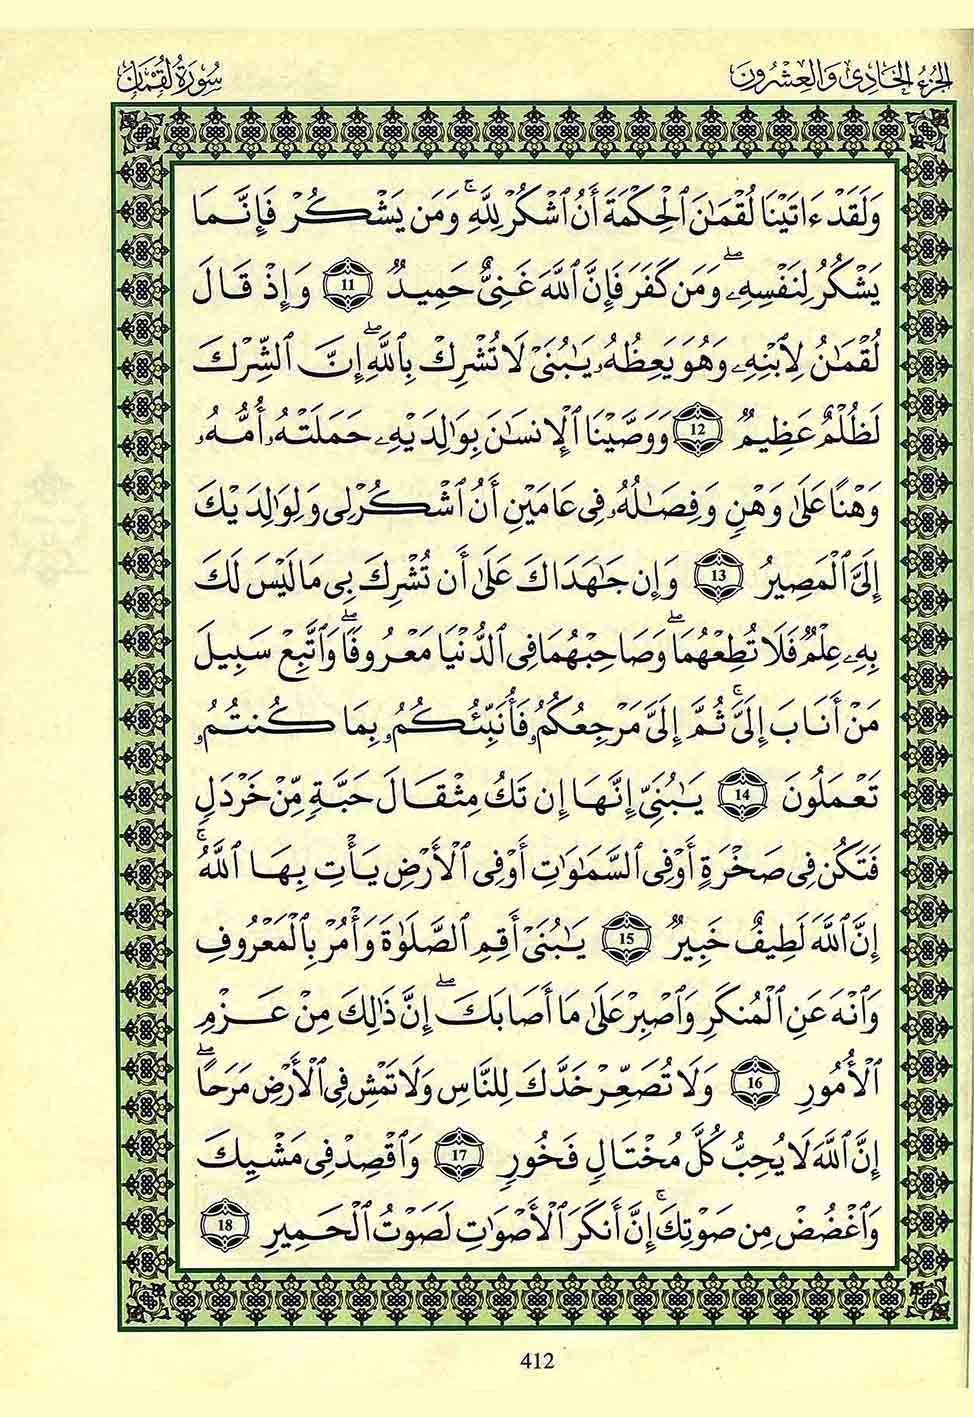 الجزء الحادى والعشرون
سورة لقمان
وَلَقَدْ ءَاتَيْنَا لُقْمَٰنَ ٱلْحِكْمَةَ أَنُ ٱشْكُرْ لِلَّهِۚ وَمَن يَشْكُرْ فَإِنَّمَا
يَشْكُرُ لِنَفْسِهِۦۖ وَمَن كَفَرَ فَإِنَّ ٱللَّهَ غَنِىٌّ حَمِيدٌ 11 وَإِذْ قَالَ
لُقْمَٰنُ لِٱبْنِهِۦ وَهُوَ يَعِظُهُۥ يَٰبُنَىْ لَا تُشْرِكْ بِٱللَّهِۖ إِنَّ ٱلشِّرْكَ
لَظُلْمٌ عَظِيمٌ 12 وَوَصَّيْنَا ٱلْإِنسَٰنَ بِوَٰلِدَيْهِۦ حَمَلَتْهُۥ أُمُّهُۥ
وَهْنًا عَلَىٰ وَهْنٍ وَفِصَٰلُهُۥ فِى عَامَيْنِ أَنُ ٱشْكُرْ لِى وَلِوَٰلِدَيْكَ
إِلَىَّ ٱلْمَصِيرُ 13 وَإِن جَٰهَدَاكَ عَلَىٰ أَن تُشْرِكَ بِى مَا لَيْسَ لَكَ
بِهِۦ عِلْمٌ فَلَا تُطِعْهُمَاۖ وَصَاحِبْهُمَا فِى ٱلدُّنْيَا مَعْرُوفًاۖ وَٱتَّبِعْ سَبِيلَ
مَنْ أَنَابَ إِلَىَّۚ ثُمَّ إِلَىَّ مَرْجِعُكُمُۥ فَأُنَبِّئُكُمُۥ بِمَا كُنتُمُۥ
تَعْمَلُونَ 14 يَٰبُنَىِّ إِنَّهَا إِن تَكُ مِثْقَالَ حَبَّةٍ مِّنْ خَرْدَلٍ
فَتَكُن فِى صَخْرَةٍ أَوْ فِى ٱلسَّمَٰوَٰتِ أَوْ فِى ٱلْأَرْضِ يَأْتِ بِهَا ٱللَّهُۚ
إِنَّ ٱللَّهَ لَطِيفٌ خَبِيرٌ 15 يَٰبُنَىْ أَقِمِ ٱلصَّلَوٰةَ وَأْمُرْ بِٱلْمَعْرُوفِ
وَٱنْهَ عَنِ ٱلْمُنكَرِ وَٱصْبِرْ عَلَىٰ مَا أَصَابَكَۖ إِنَّ ذَٰلِكَ مِنْ عَزْمِ
ٱلْأُمُورِ 16 وَلَا تُصَعِّرْ خَدَّكَ لِلنَّاسِ وَلَا تَمْشِ فِى ٱلْأَرْضِ مَرَحًاۖ
إِنَّ ٱللَّهَ لَا يُحِبُّ كُلَّ مُخْتَالٍ فَخُورٍ 17 وَٱقْصِدْ فِى مَشْيِكَ
وَٱغْضُضْ مِن صَوْتِكَۚ إِنَّ أَنكَرَ ٱلْأَصْوَٰتِ لَصَوْتُ ٱلْحَمِيرِ 18
412